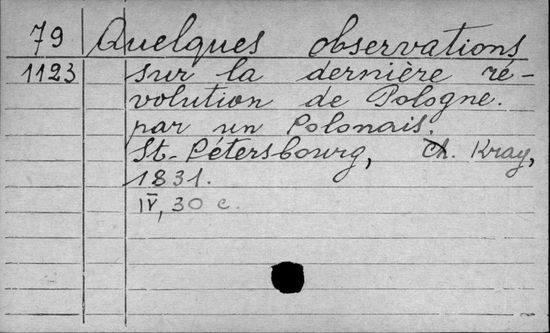 79 Quelques observations
1123 sur la dernière ré-
volution de Pologne.
par un Polonais.
St-Pétersbourg, Ch. Kray,
1831.
IV, 30 c.